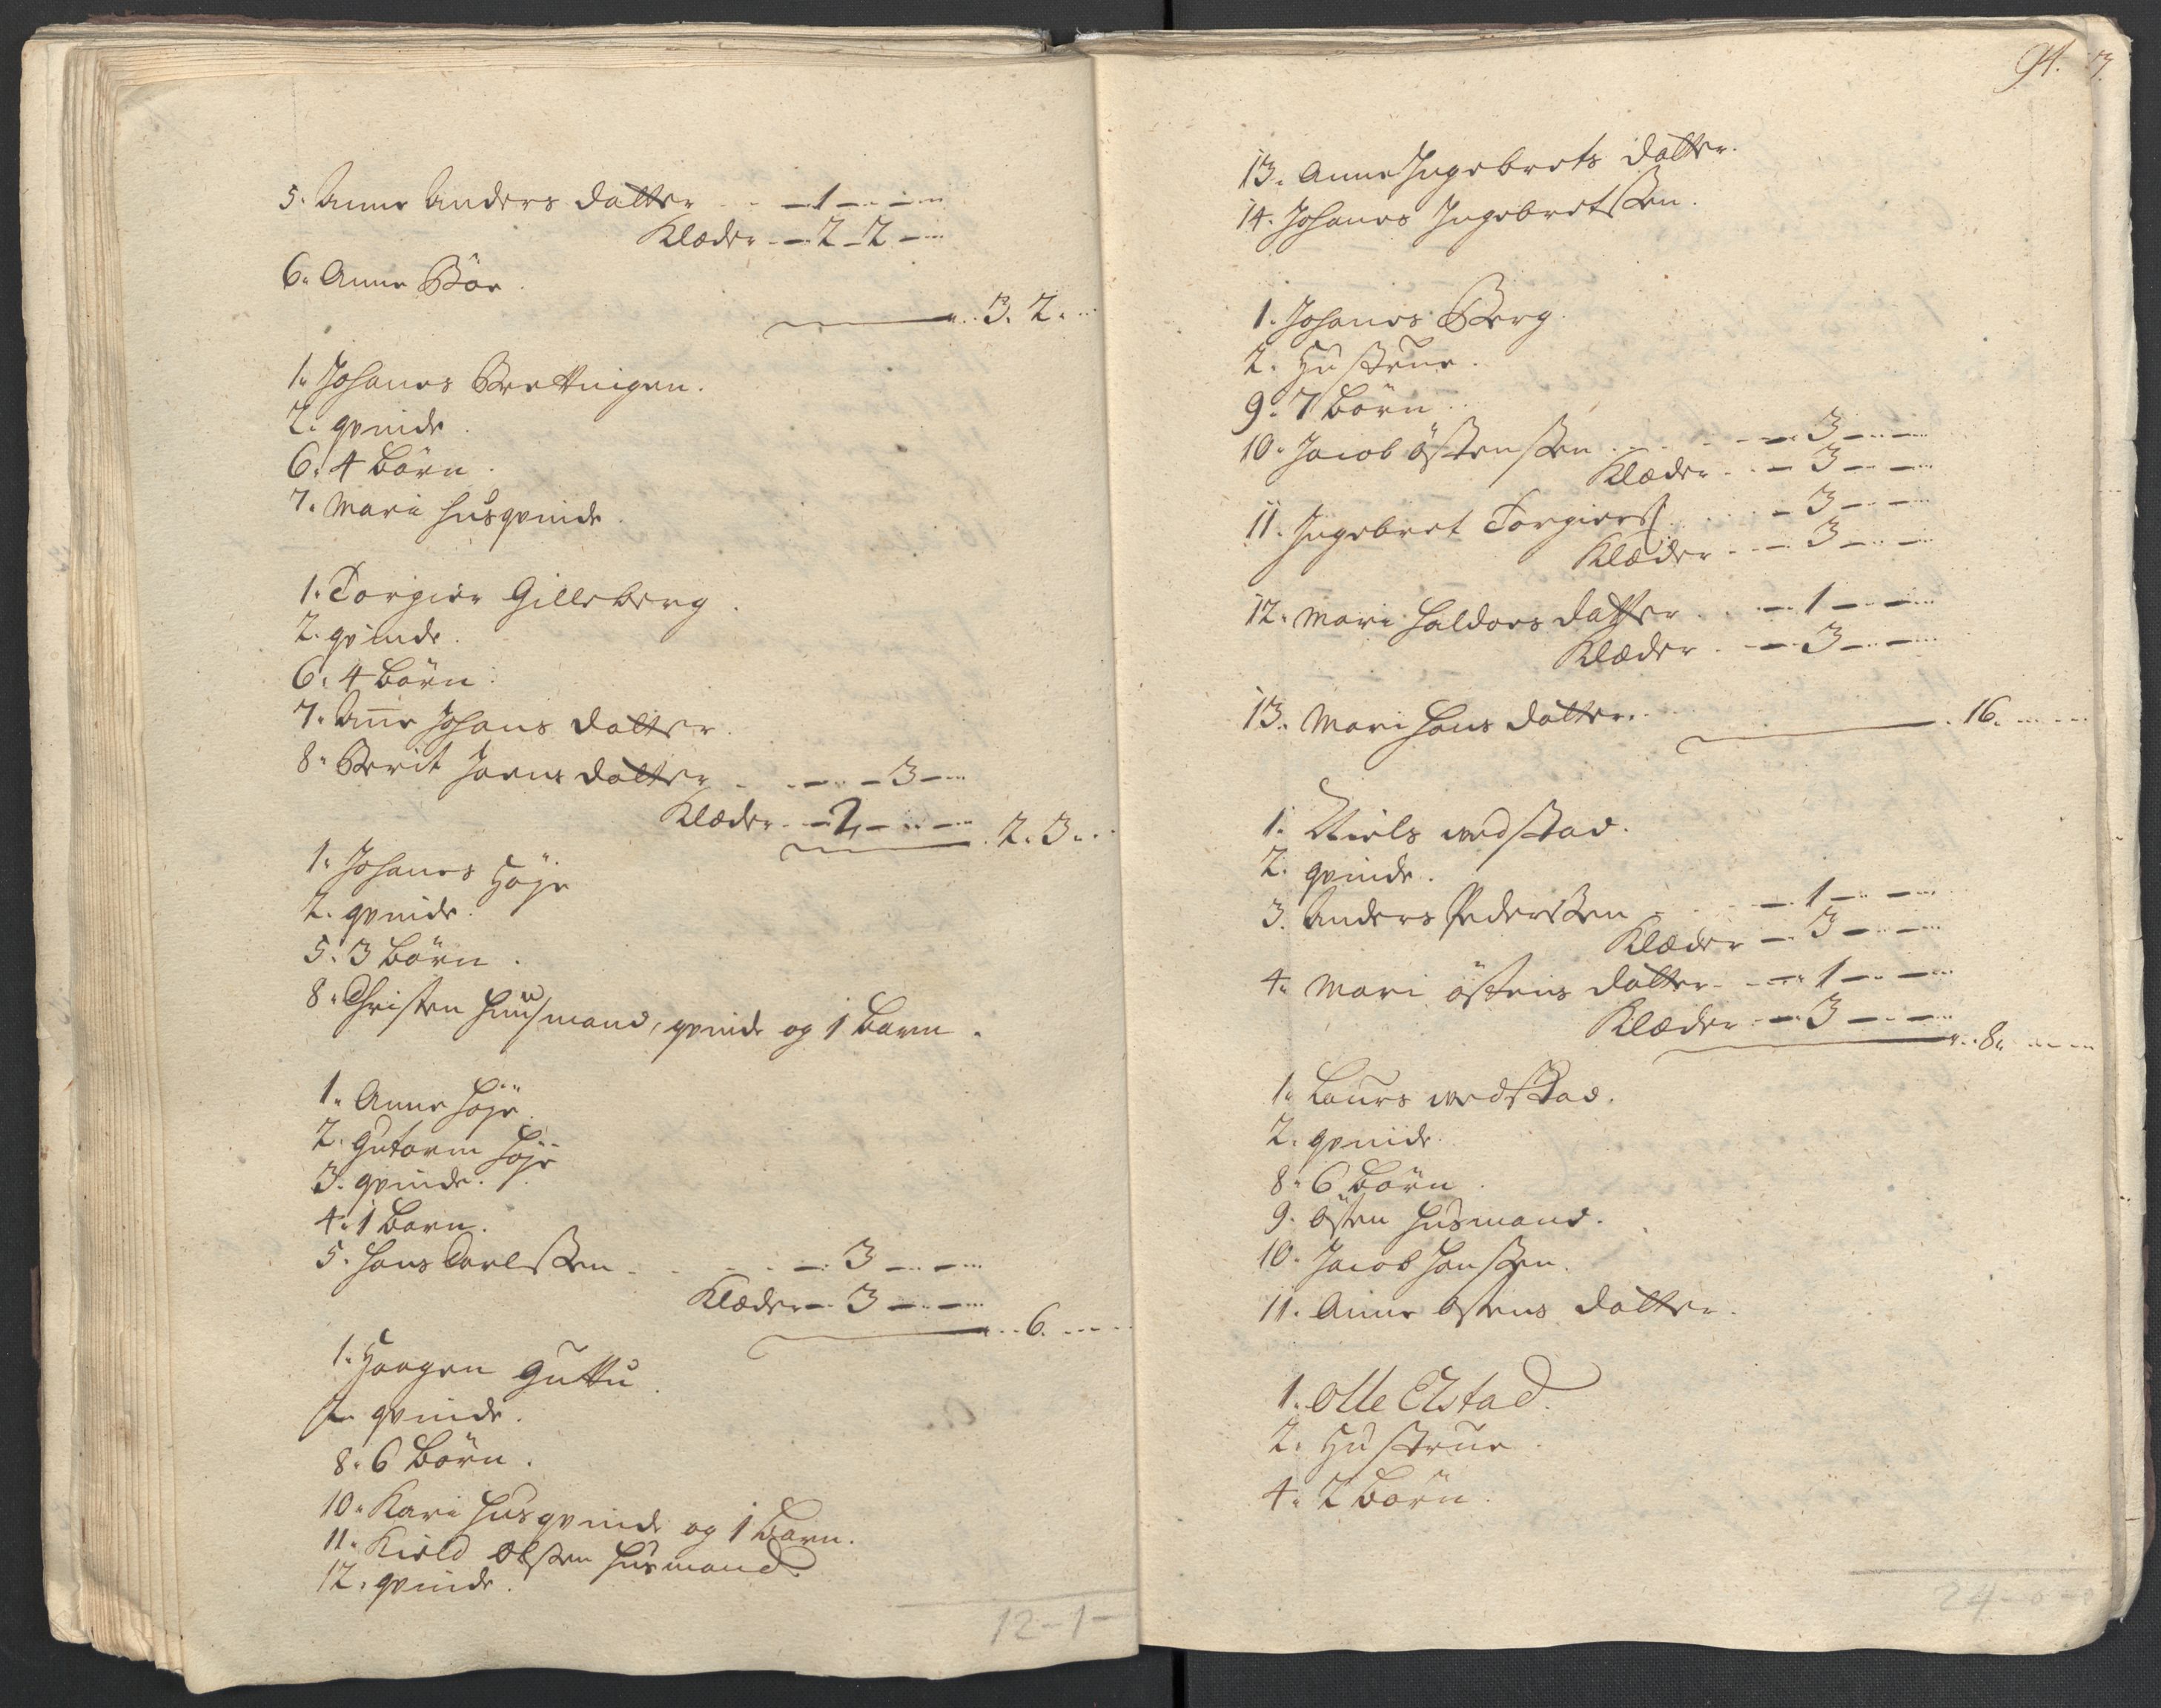 5. Anne Anders datter - - 1 - - -
Klæder - - 2 - 2 - -
6. Anne Böe.
3. 2. -
1. Johanes Brettningen.
2. qvinde.
6. 4 börn.
7. Mari husqvinde.
1. Torgier Gilleberg.
2. qvinde.
6. 4 börn.
7. Anne Johans datter.
8. Berit Joens datter - - - 3 - -
Klæder - 2 - - -
2. 3. -
1. Johanes Höje
2. qvinde.
5. 3 börn.
8. Christen huusmand, qvinde og 1 barn.
1. Anne Höje.
2. Gutorm Höje
3. qvinde.
4. 1 barn.
5. Hans Carlssen - - - 3 - - -
Klæder - 3 - - -
6. - -
1. Haagen Guttu.
2. qvinde.
8. 6 börn.
10. Kari husqvinde og 1 barn.
11. Kield Olssen husmand.
12. qvinde.
12-1-
91.
13. Anne Ingebrets datter.
14. Johanes Ingebretssen.
1. Johanes Berg.
2. Hustrue.
9. 7 börn.
10. Jacob Östenssen - - - 3 - - -
Klæder - - 3 - - -
11. Ingebret Torgierss. - - 3 - - -
Klæder - - 3 - - -
12. Mari Haldors datter - - 1 - - -
Klæder - - 3 - - -
13. Mari Hans datter.
16. - -
1. Niels wedstad.
2. qvinde.
3. Anders Pederssen - - 1 - - -
Klæder - 3 - - -
4. Mari Östens datter - - 1 - - -
Klæder - 3 - - -
8. - -
1. Laurs wedstad.
2. qvinde.
8. 6 börn.
9. Östen husmand.
10. Jacob Hanssen.
11. Anne Östens datter.
1. Olle Elstad.
2. Hustrue.
4. 2 börn.
24-0-0